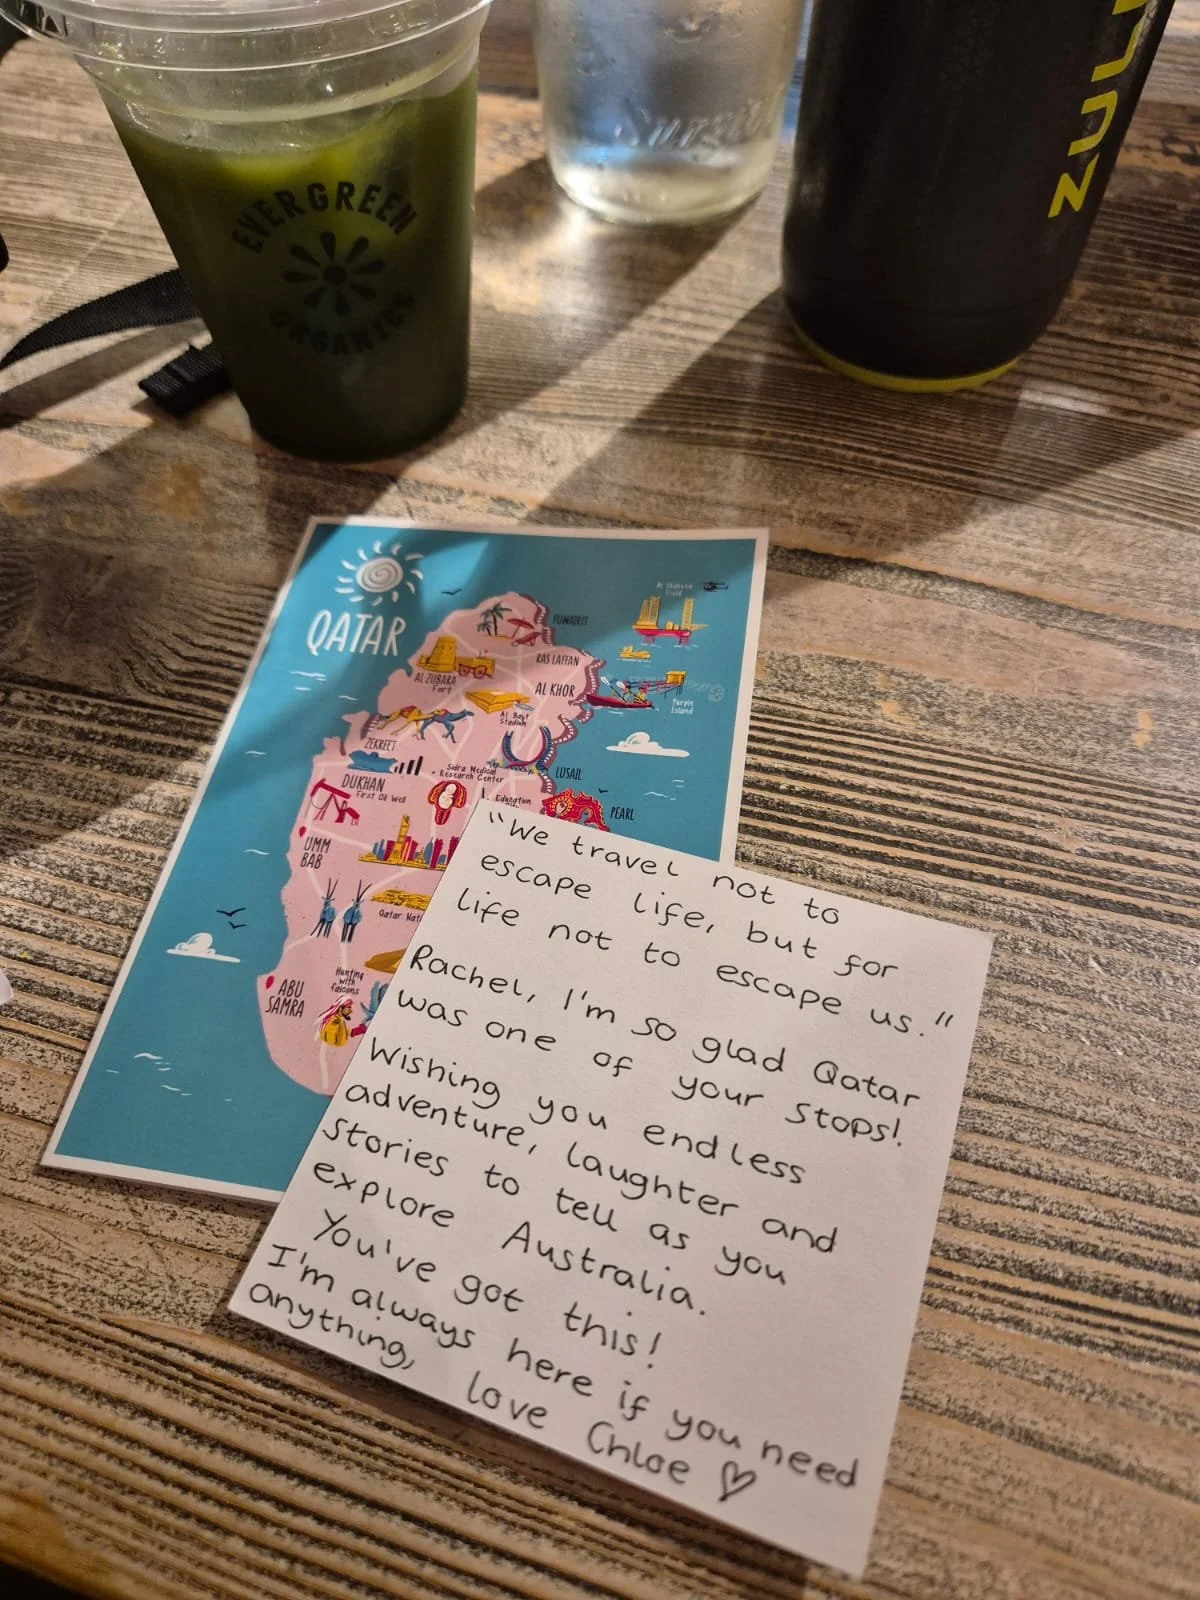 EVERGREEN
ORGANICS
ZULU
QATAR
Al Shaheen
Field
FUWAIRIT
RAS LAFFAN
AL ZUBARA
Fort
AL KHOR
Purple
Island
Al Bayt
Stadium
ZEKREET
Sidra Medical
Research Center
LUSAIL
DUKHAN
First Oil Well
Education
PEARL
UMM
BAB
Qatar Nat
Hunting
with
falcons
ABU
SAMRA
"We travel not to
escape life, but for
life not to escape us."
Rachel, I'm so glad Qatar
was one of your stops!
Wishing you endless
adventure, laughter and
stories to tell as you
explore Australia.
You've got this!
I'm always here if you need
anything, love Chloe ♡